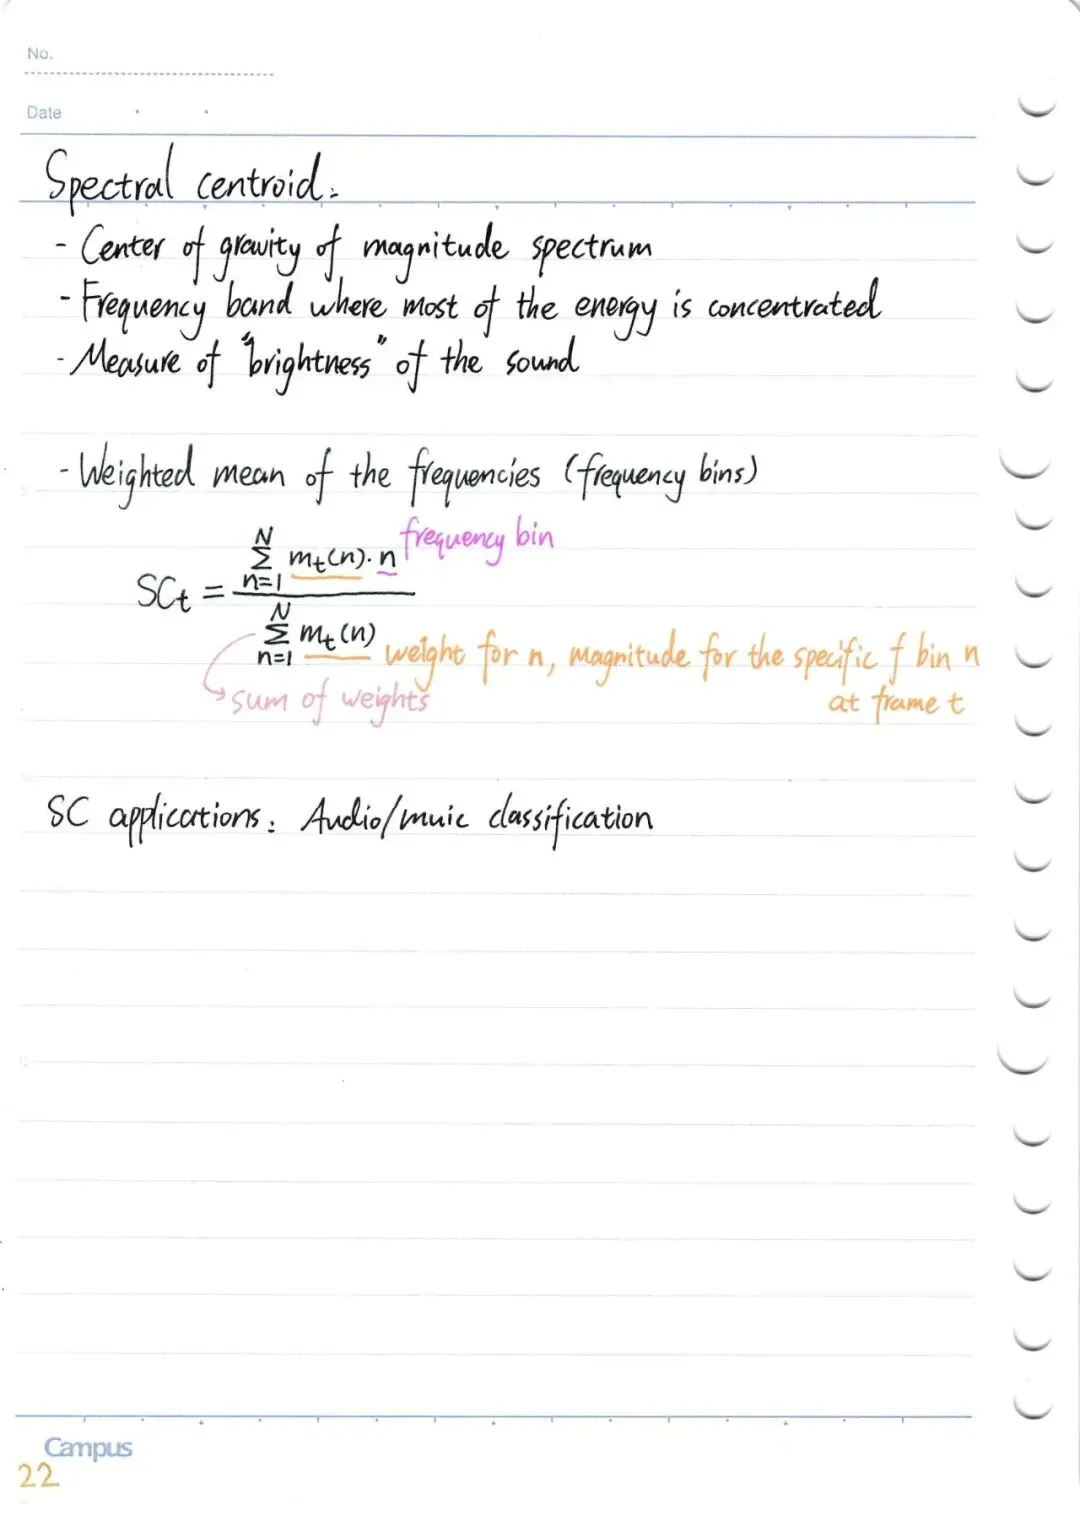 No.
Date
Spectral centroid:
- Center of gravity of magnitude spectrum
- Frequency band where most of the energy is concentrated
- Measure of "brightness" of the sound
- Weighted mean of the frequencies (frequency bins)
SCt = ∑_{n=1}^{N} mt(n)·n / ∑_{n=1}^{N} mt(n)
frequency bin
weight for n, magnitude for the specific f bin n
at frame t
sum of weights
SC applications: Audio/muic classification
Campus
22